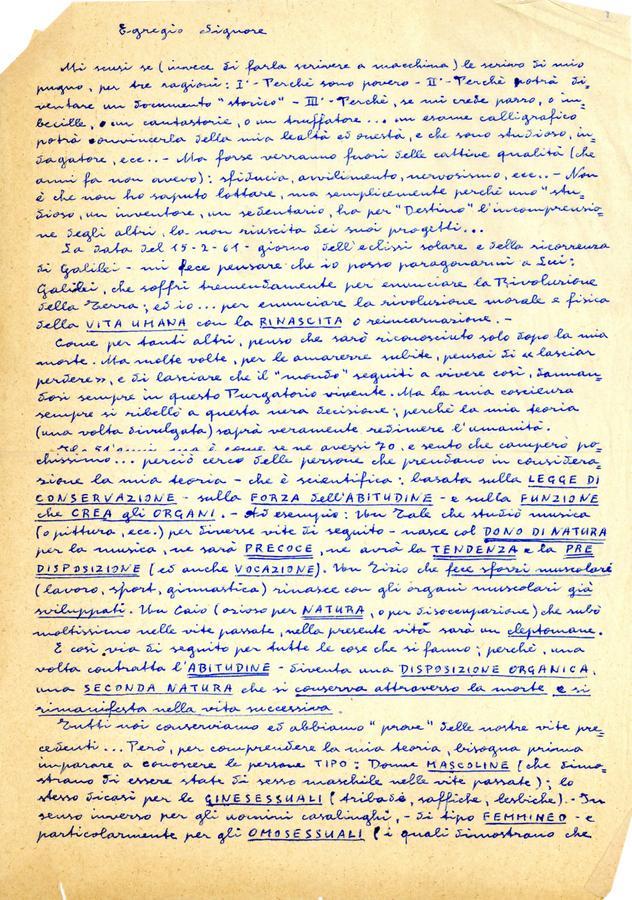 Egregio Signore
Mi scusi se (invece di farla scrivere a macchina) le scrivo di mio
pugno, per tre ragioni: I°- Perchè sono povero - II°- Perchè potrà di=
ventare un documento "storico" - III°- Perchè, se mi crede pazzo, o im=
becille, o un cantastorie, o un truffatore... un esame calligrafico
potrà convincerla della mia lealtà ed onestà, e che sono studioso, in=
dagatore, ecc..- Ma forse verranno fuori delle cattive qualità (che
anni fa non avevo): sfiducia, avvilimento, nervosismo, ecc..- Non
è che non ho saputo lottare, ma semplicemente perchè uno "stu=
dioso, un inventore, un sedentario, ha per "Destino" l'incomprensio=
ne degli altri, la non riuscita dei suoi progetti...
La data del 15-2-61- giorno dell'eclissi solare e della ricorrenza
di Galilei - mi fece pensare che io posso paragonarmi a Lui:
Galilei, che soffrì tremendamente per enunciare la Rivoluzione
della Terra; ed io... per enunciare la rivoluzione morale e fisica
della VITA UMANA con la RINASCITA o reincarnazione.-
Come per tanti altri, penso che sarò riconosciuto solo dopo la mia
morte. Ma molte volte, per le amarezze subite, pensai di «lasciar
perdere», e di lasciare che il "mondo" seguiti a vivere così, dannan=
dosi sempre in questo Purgatorio vivente. Ma la mia coscienza
sempre si ribellò a questa nera decisione; perchè la mia teoria
(una volta divulgata) saprà veramente redimere l'umanità.
è come se ne avessi 70, e sento che camperò po=
chissimo... perciò cerco delle persone che prendano in considera=
zione la mia teoria - che è scientifica: basata sulla LEGGE DI
CONSERVAZIONE - sulla FORZA dell'ABITUDINE - e sulla FUNZIONE
che CREA gli ORGANI.- Ad esempio: Un Tale che studiò musica
(o pittura, ecc.) per diverse vite di seguito - nasce col DONO DI NATURA
per la musica, ne sarà PRECOCE, ne avrà la TENDENZA e la PRE
DISPOSIZIONE (ed anche VOCAZIONE). Un Tizio che fece sforzi muscolari
(lavoro, sport, ginnastica) rinasce con gli organi muscolari già
sviluppati. Un Caio (ozioso per NATURA, o per disoccupazione) che rubò
moltissimo nelle vite passate, nella presente vita sarà un cleptomane.
E così via di seguito per tutte le cose che si fanno; perchè, una
volta contratta l'ABITUDINE - diventa una DISPOSIZIONE ORGANICA,
una SECONDA NATURA che si conserva attraverso la morte e si
rimanifesta nella vita successiva.
Tutti noi conserviamo ed abbiamo "prove" delle nostre vite pre=
cedenti... Però, per comprendere la mia teoria, bisogna prima
imparare a conoscere le persone TIPO: Donne MASCOLINE (che dimo=
strano di essere state di sesso maschile nelle vite passate); lo
stesso dicasi per le GINESESSUALI (tribade, saffiche, lesbiche).- In
senso inverso per gli uomini casalinghi, - di tipo FEMMINEO - e
particolarmente per gli OMOSESSUALI (i quali dimostrano che